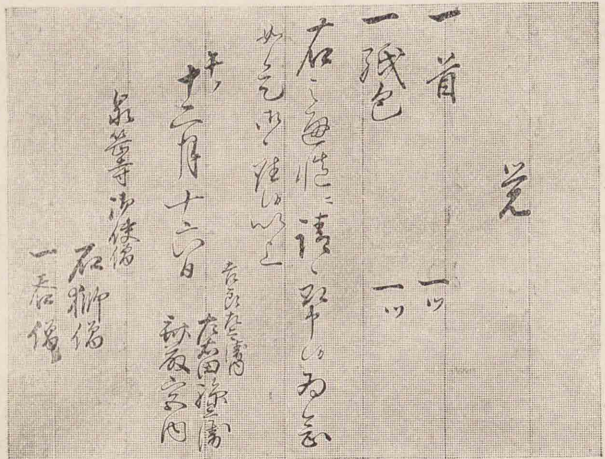 覚
一首 一ツ
一紙包 一ツ
右之通慥ニ請取申候為念
如是御座候以上
午ノ
十二月十六日
吉良左兵衛内
左右田孫兵衛
斎藤宮内
泉岳寺御使僧
石獅僧
一呑僧